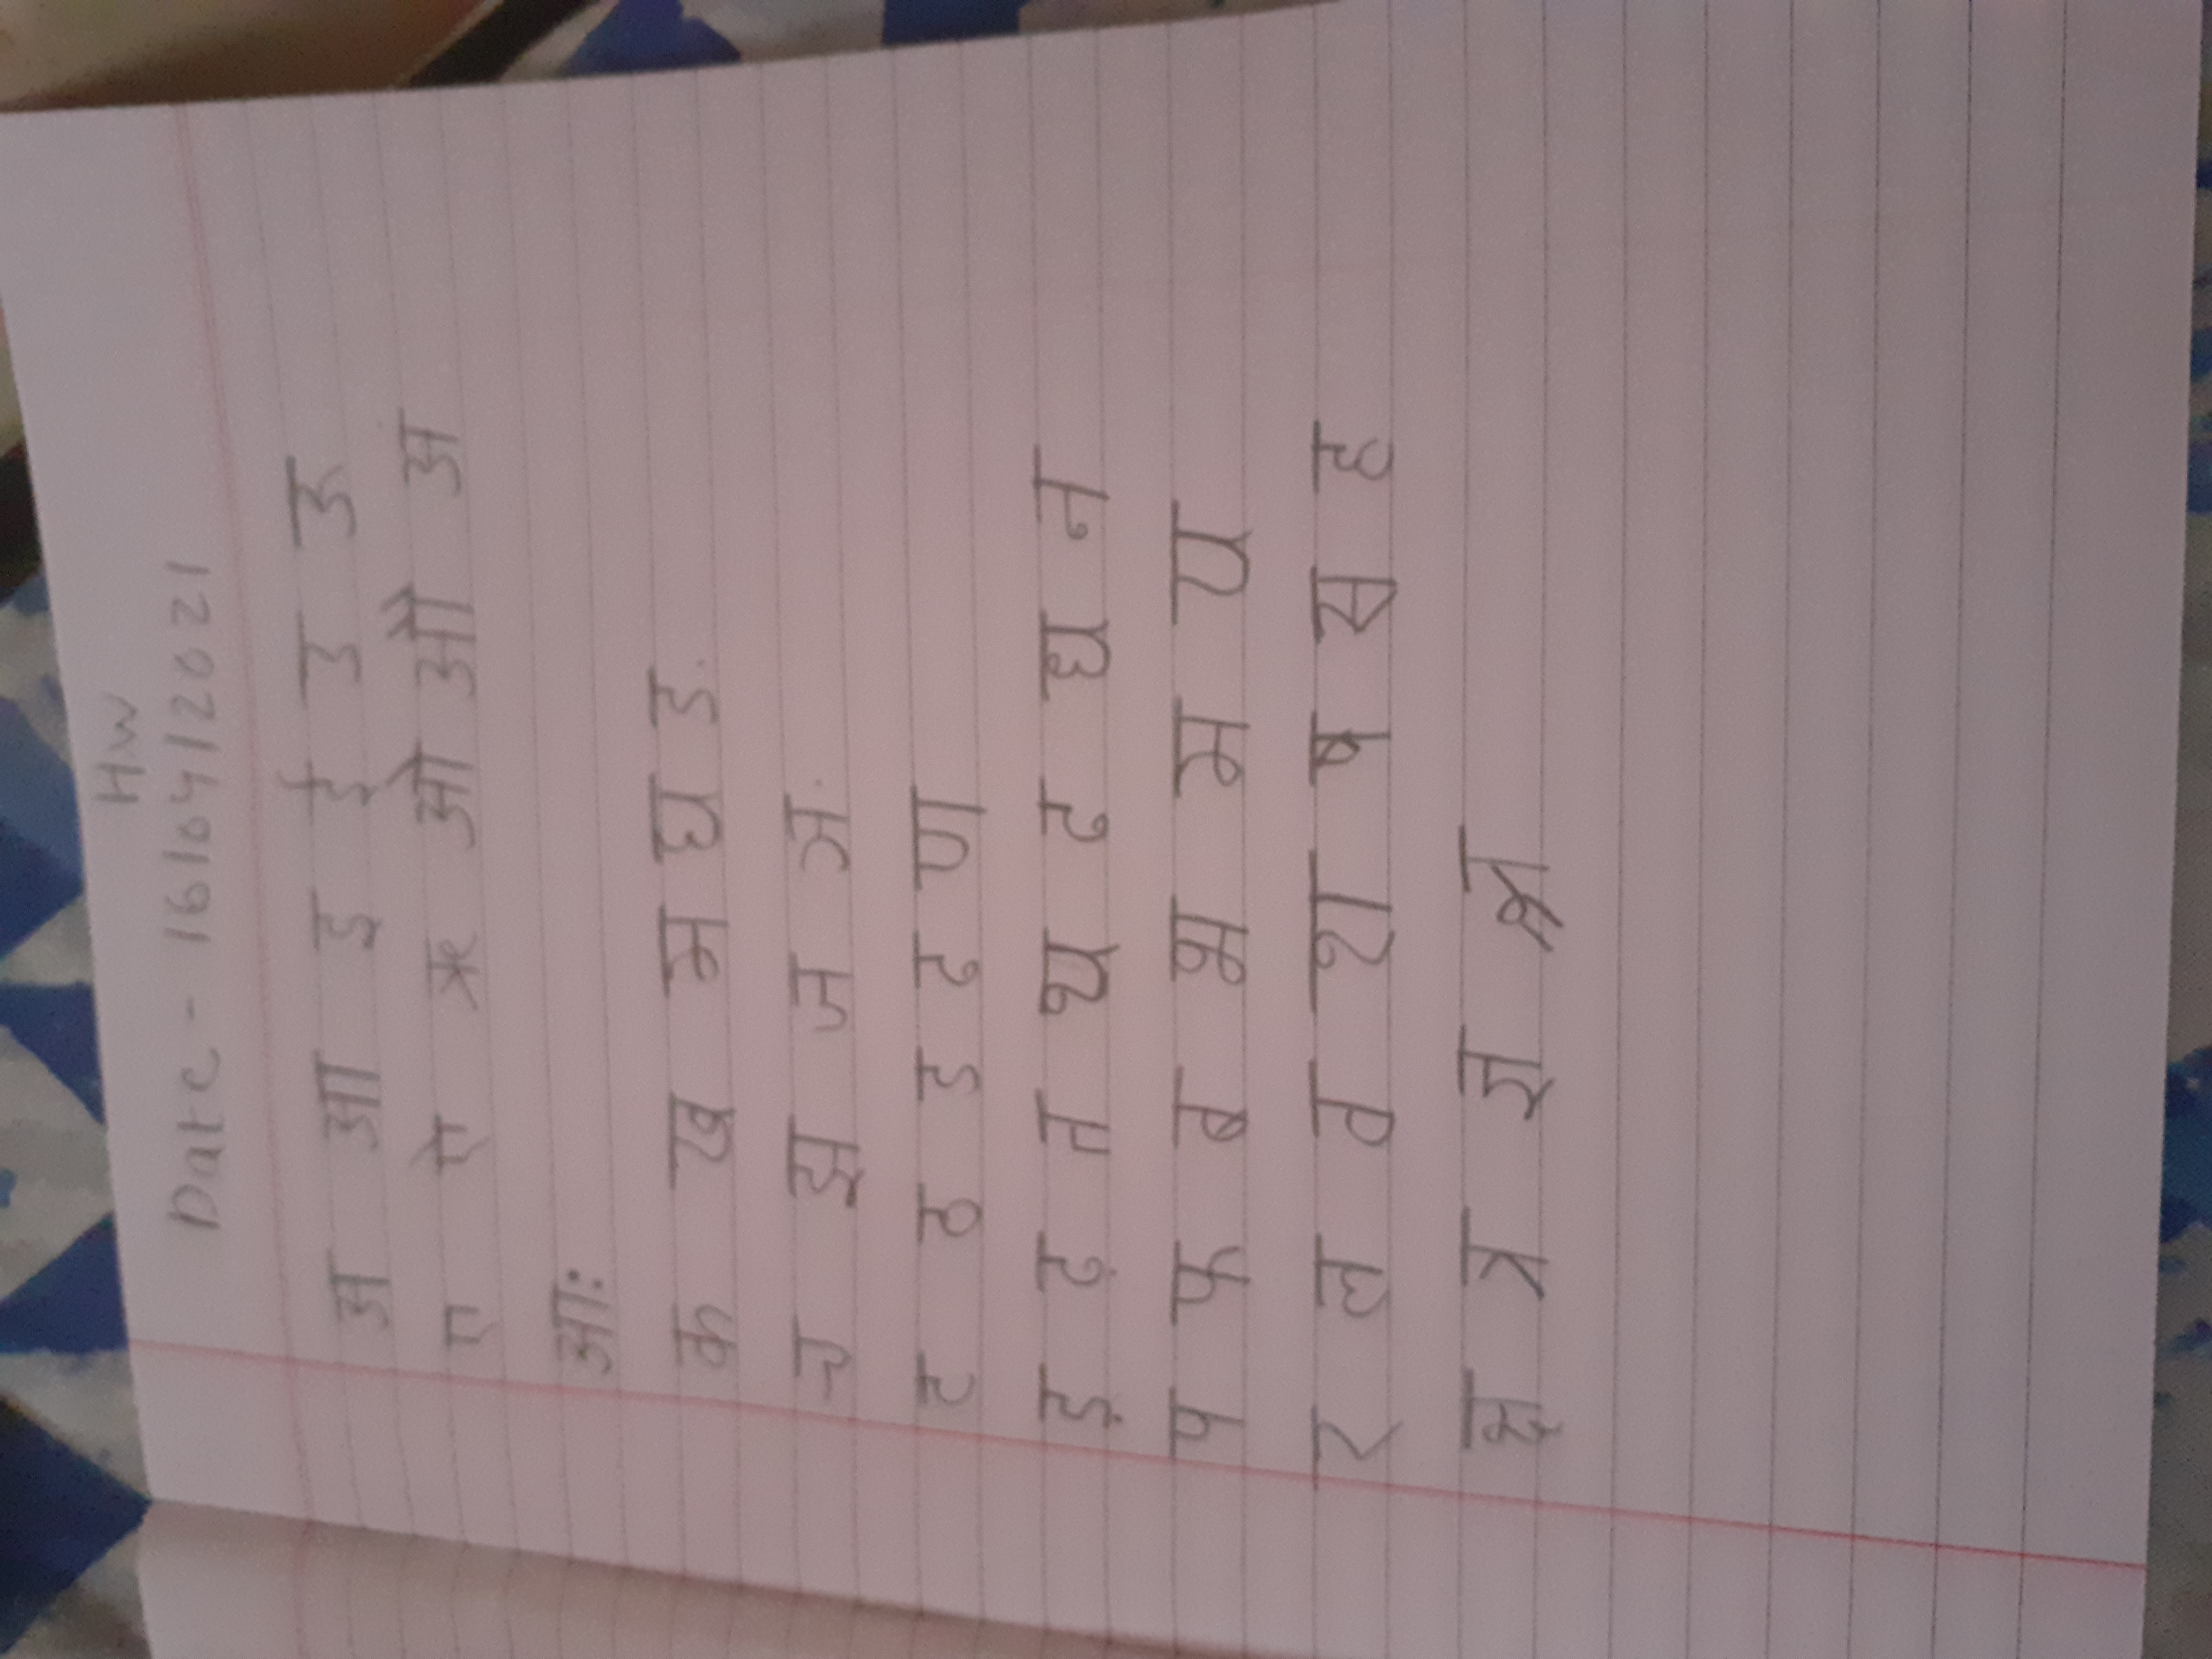 HW
Date - 16/04/2021
अ आ इ ई उ ऊ
ए ऐ ऋ ओ औ अ
आः
क ख म घ ड.
च झ ज ञ.
ट ठ ड ढ ण
ड़ ढ़ त थ द घ न
प फ ब भ म य
र ल व श ष स ह
क्ष त्र ज्ञ श्र